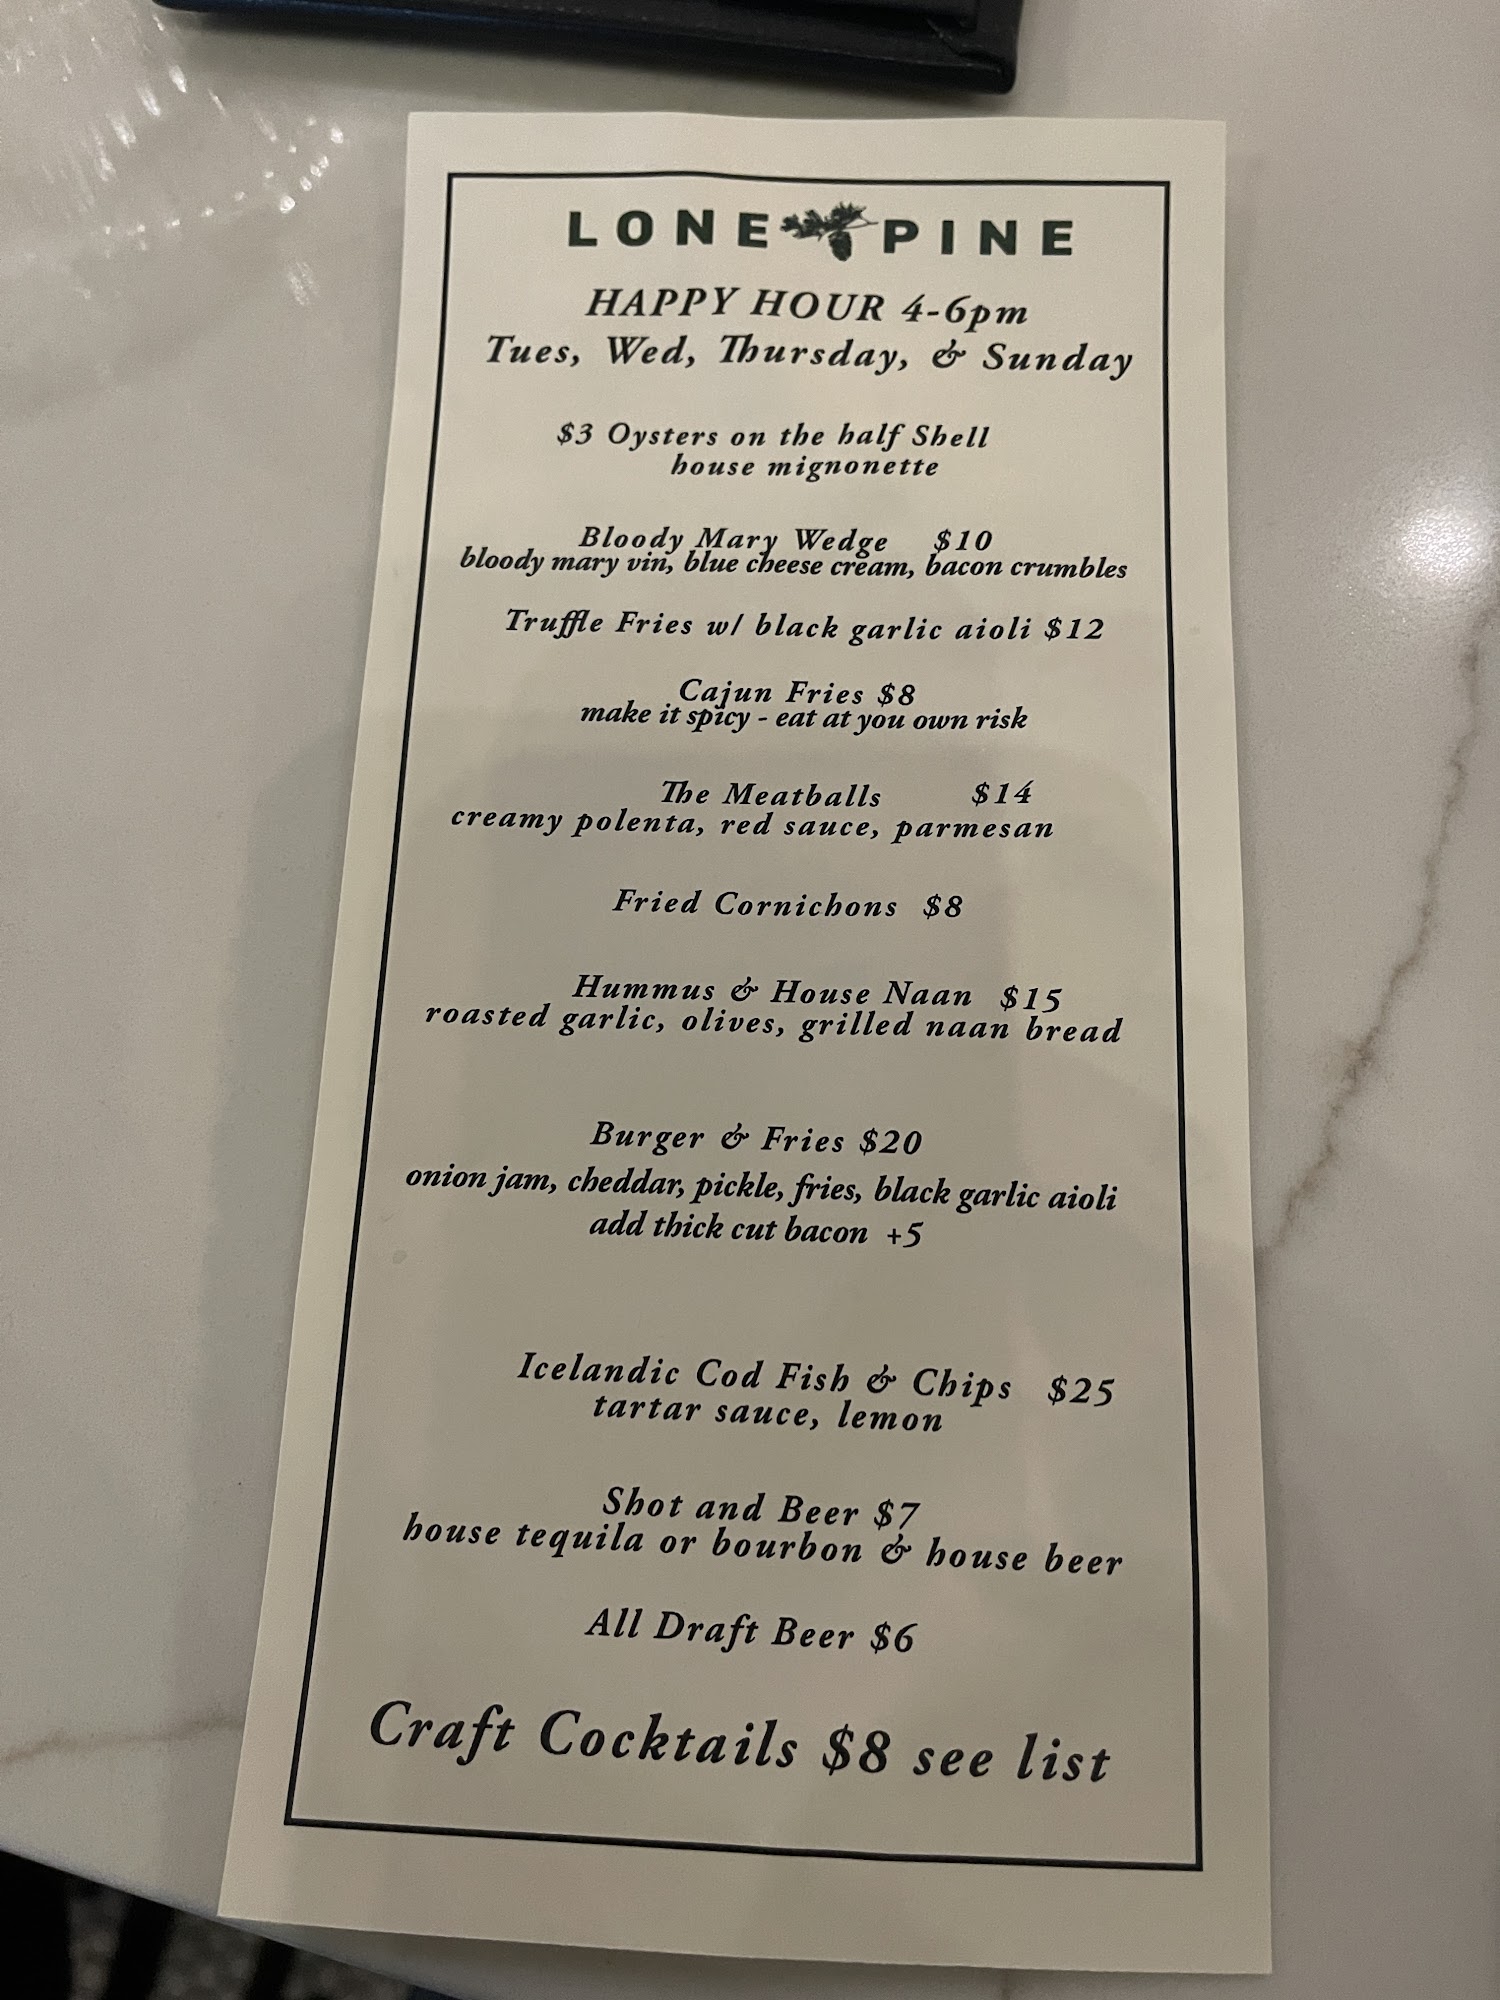 LONE PINE
HAPPY HOUR 4-6pm
Tues, Wed, Thursday, & Sunday
$3 Oysters on the half Shell
house mignonette
Bloody Mary Wedge $10
bloody mary vin, blue cheese cream, bacon crumbles
Truffle Fries w/ black garlic aioli $12
Cajun Fries $8
make it spicy - eat at you own risk
The Meatballs $14
creamy polenta, red sauce, parmesan
Fried Cornichons $8
Hummus & House Naan $15
roasted garlic, olives, grilled naan bread
Burger & Fries $20
onion jam, cheddar, pickle, fries, black garlic aioli
add thick cut bacon +5
Icelandic Cod Fish & Chips $25
tartar sauce, lemon
Shot and Beer $7
house tequila or bourbon & house beer
All Draft Beer $6
Craft Cocktails $8 see list